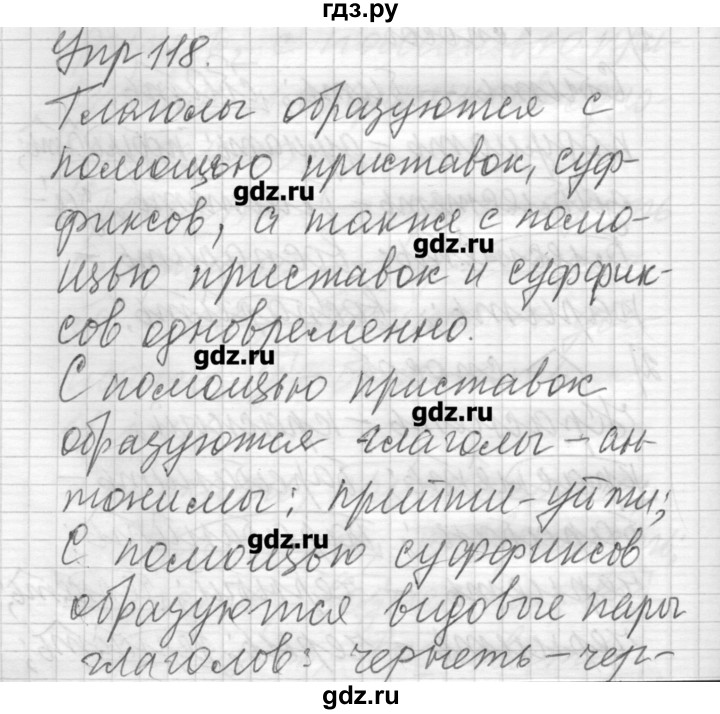 гдз.ру
Упр 118.
Глаголы образуются с
помощью приставок, суф-
gdz.ru
фиксов, а также с помо-
gdz.ru
щью приставок и суффик-
сов одновременно.
gdz.ru
С помощью приставок
gdz.ru
образуются глаголы - ан-
тонимы: прийти - уйти;
gdz.ru
С помощью суффиксов
образуются видовые пары
глаголов: чернеть - чер-
gdz.ru